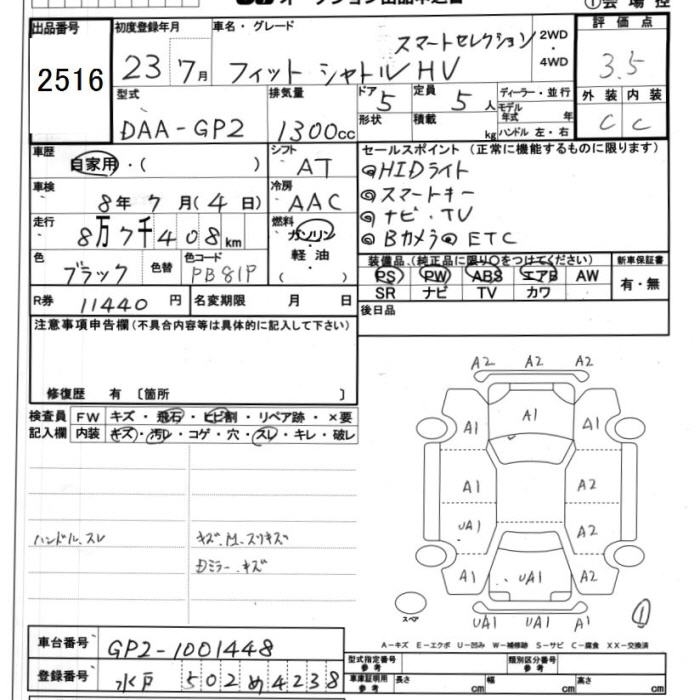 オークション出品申込書 ①会場控
出品番号 2516
初度登録年月 23 7月
車名・グレード スマートセレクション フィット シャトル HV
2WD・4WD
評価点 3.5
型式 DAA-GP2
排気量 1300cc
ドア 5 定員 5人
形状 積載 kg
ディーラー・並行
モデル年式 年
ハンドル 左・右
外装 内装
C C
車歴 自家用・( )
シフト AT
セールスポイント (正常に機能するものに限ります)
◎HIDライト
◎スマートキー
◎ナビ・TV
◎Bカメラ◎ETC
車検 8年 7月(4日)
冷房 AAC
走行 8万7千408km
燃料 ガソリン・軽油・( )
色 ブラック 色替 色コード PB81P
装備品 (純正品に限り○をつけてください) 新車保証書
PS PW ABS エアB AW 有・無
SR ナビ TV カワ
R券 11440円 名変期限 月 日
後日品
注意事項申告欄(不具合内容等は具体的に記入して下さい)
修復歴 有 〔箇所 〕
検査員記入欄
FW キズ・飛石・ヒビ割・リペア跡・×要
内装 キズ・汚レ・コゲ・穴・スレ・キレ・破レ
ハンドル.スレ キズ.M.スリキズ
Dミラー.キズ
A2 A2 A2
A1 A1 A1
A1 A2
UA1 A2
A1 UA1 A2
スペア UA1 UA1 A1 ①
A-キズ E-エクボ U-凹み W-補修跡 S-サビ C-腐食 XX-交換済
車台番号 GP2-1001448
型式指定番号参考 類別区分番号参考
登録番号 水戸 502 め 4238
車庫証明用参考 長さ cm 幅 cm 高さ cm